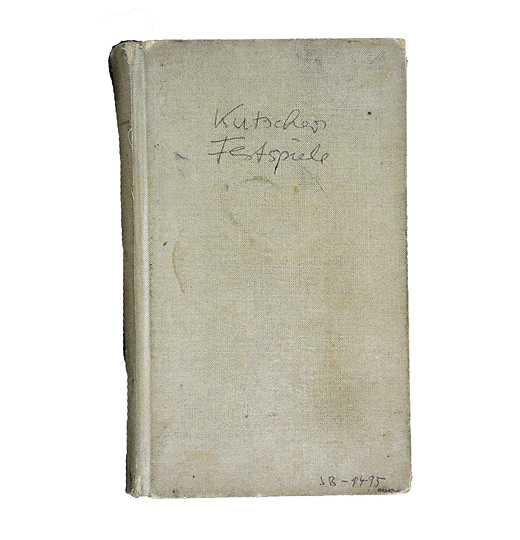 Kutscher
Festspiele
SB-1495